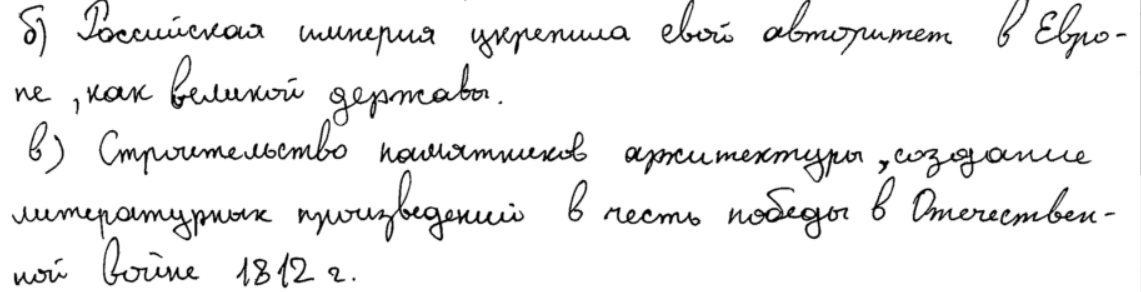 б) Российская империя укрепила свой авторитет в Евро-
пе, как великой державы.
в) Строительство памятников архитектуры, создание
литературных произведений в честь победы в Отечествен-
ной войне 1812 г.